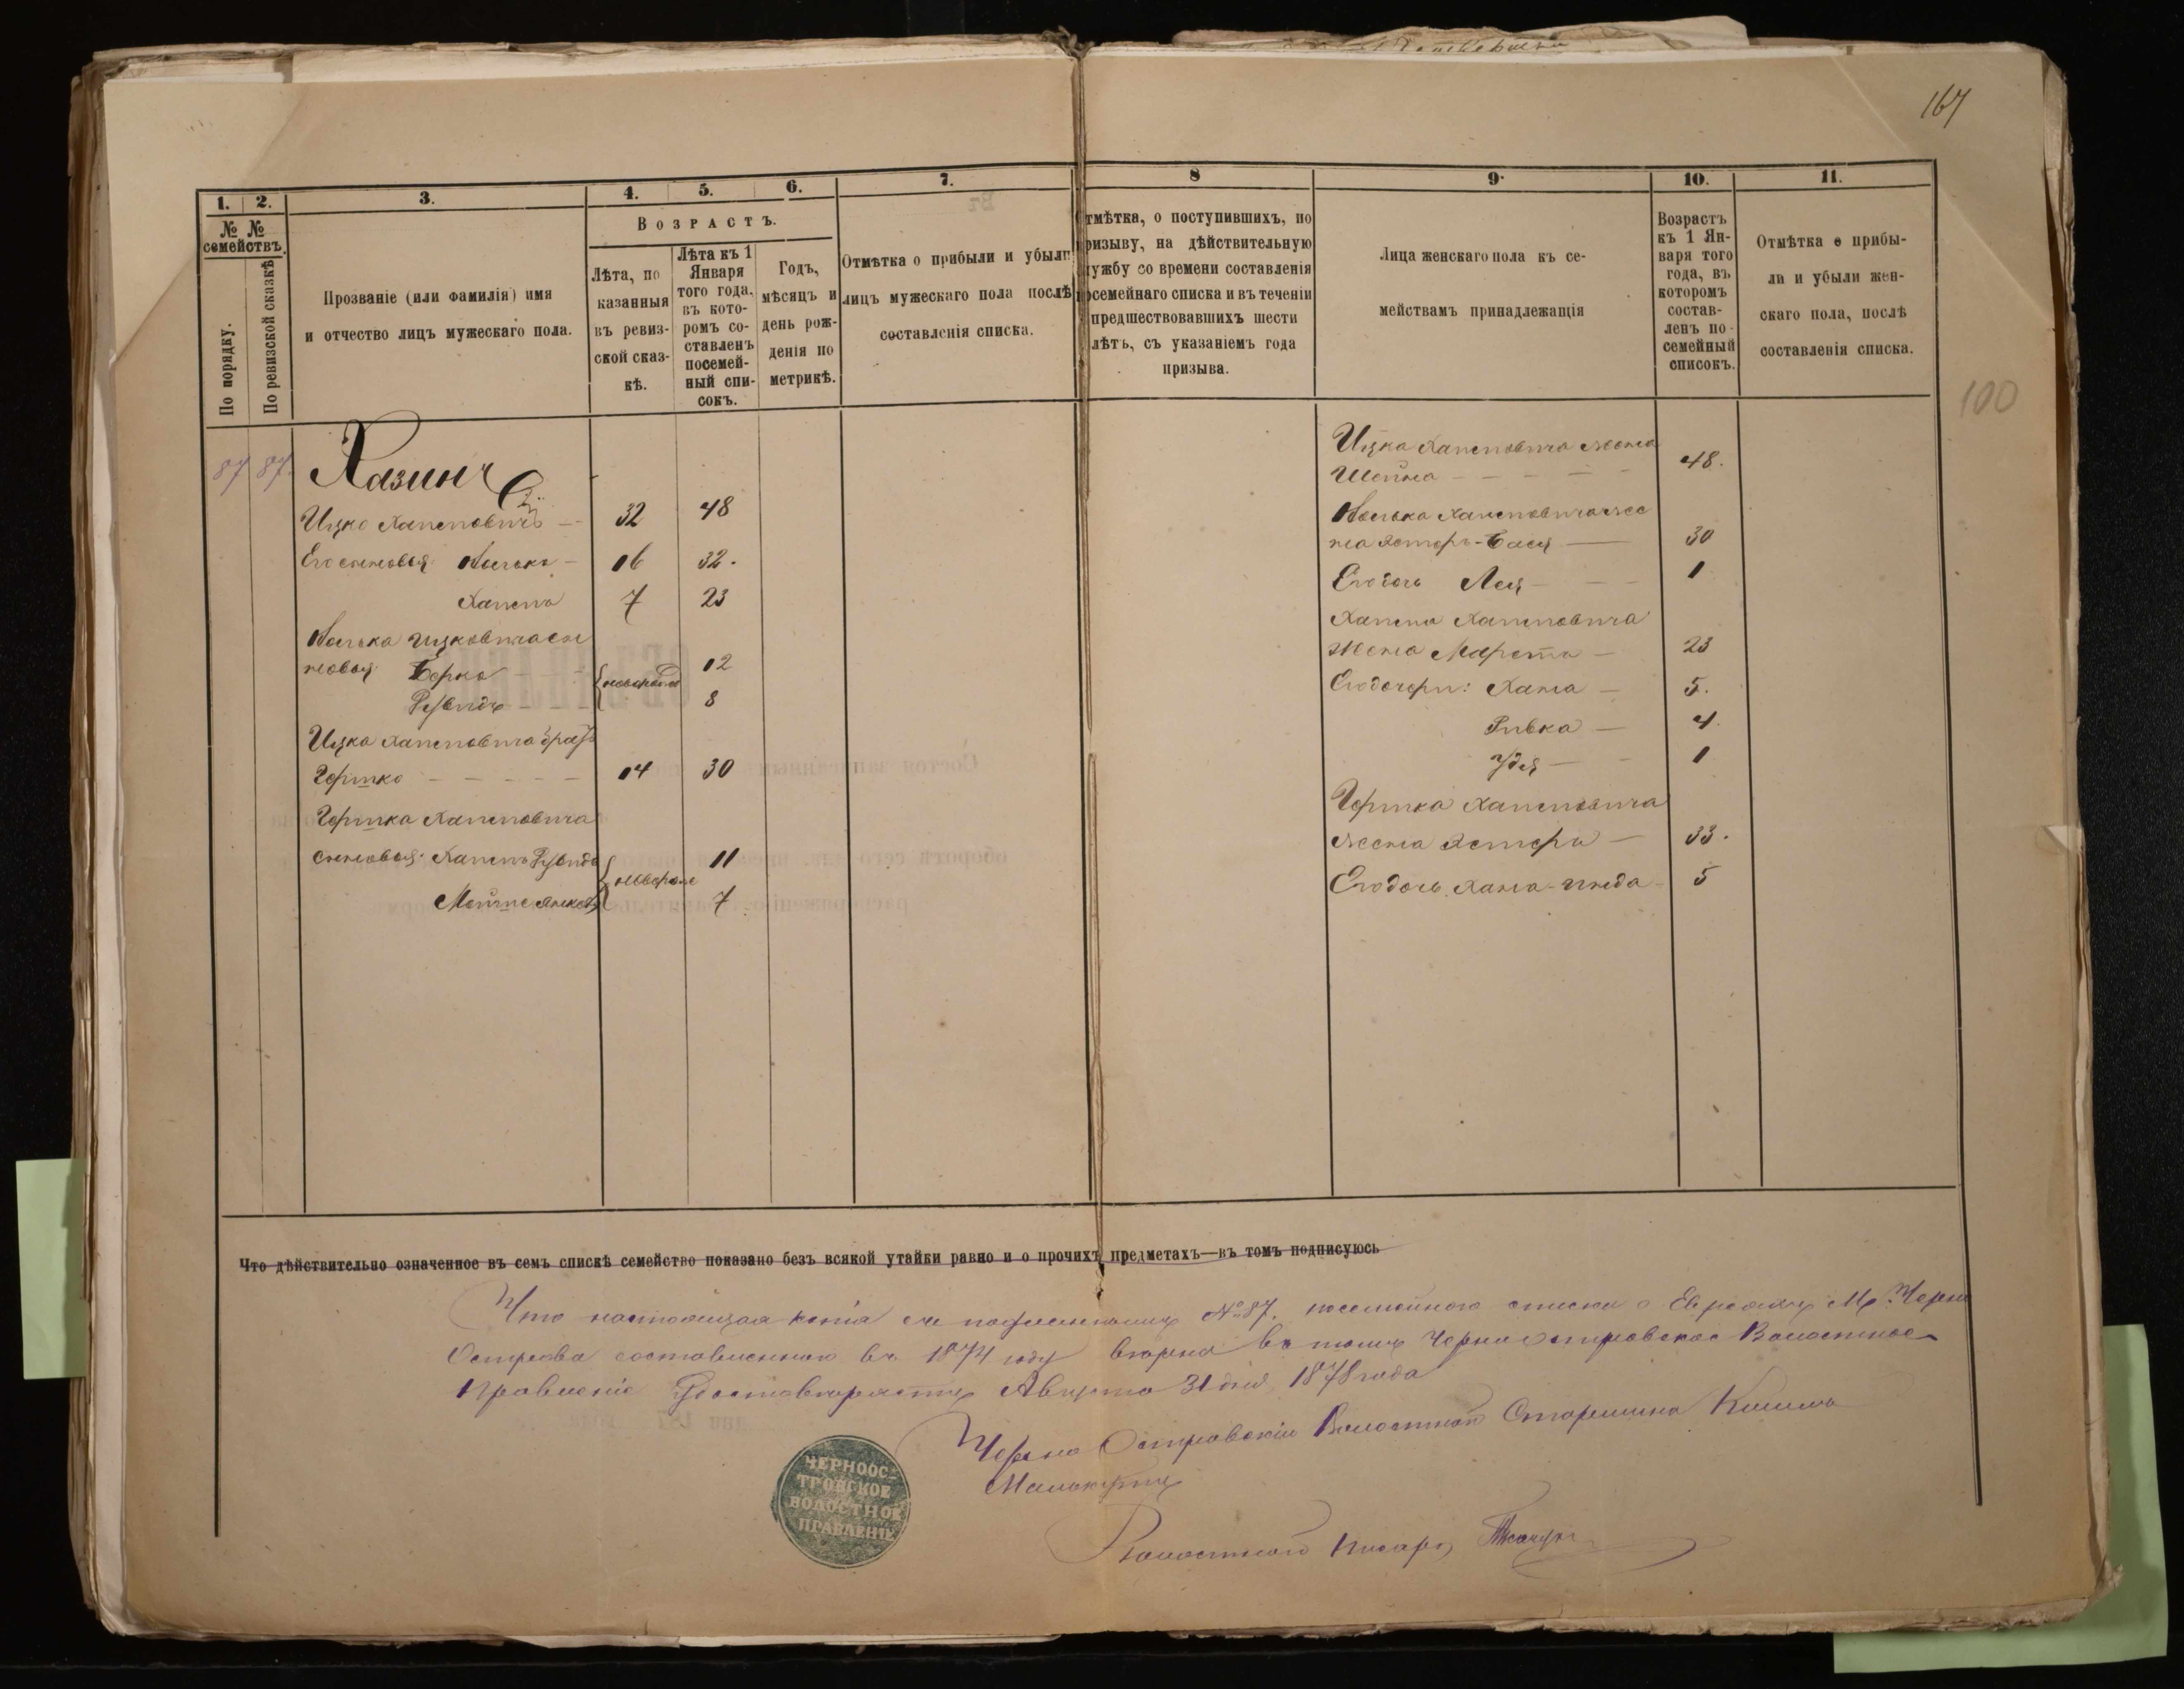 167
100
1. 2. 3. 4. 5. 6. 7. 8 9. 10. 11.
№ №
семействъ.
По порядку.
По ревизской сказкѣ
Прозваніе (или фамилія) имя
и отчество лицъ мужескаго пола.
Возрастъ.
Лѣта, по
казанныя
въ ревиз-
ской сказ-
кѣ.
Лѣта къ 1
Января
того года,
въ кото-
ромъ со-
ставленъ
посемей-
ный спи-
сокъ.
Годъ,
мѣсяцъ и
день рож-
денія по
метрикѣ.
Отмѣтка о прибыли и убыли
лицъ мужескаго пола послѣ
составленія списка.
тмѣтка, о поступившихъ, по
ризыву, на дѣйствительную
ужбу со времени составленія
осемейнаго списка и въ теченіи
предшествовавшихъ шести
лѣтъ, съ указаніемъ года
призыва.
Лица женскаго пола къ се-
мействамъ принадлежащія
Возрастъ
къ 1 Ян-
варя того
года, въ
которомъ
состав-
ленъ по-
семейный
списокъ.
Отмѣтка о прибы-
ли и убыли жен-
скаго пола, послѣ
составленія списка.
87 87. Хазинъ
Ицко Хапсповичъ — 32 48
Его сыновья: Волько — 16 32.
7 23
Волька Ицковича сы
новья: Берко 12
8
Ицка братъ
Гершко — 14 30
Гершка
сыновья: 11
Мойше 7
Ицка жена
Шейна — 48.
Волька же
на Эстеръ-Бася — 30
Его дочь Лея — 1
жена 23
Его дочери: Хана — 5.
Ривка — 4.
Удя — 1
Гершка
жена Эстеръ — 33.
Его дочь Хана-Инда — 5
Что дѣйствительно означенное въ семъ спискѣ семейство показано безъ всякой утайки равно и о прочихъ предметахъ—въ томъ подписуюсь
Что настоящая копія съ подлиннымъ № 87. посемейнаго списка о Евреяхъ М. Черна
Острова составленнаго въ 1874 году вѣрна въ томъ Черноостровское Волостное
Правленіе Удостовѣряетъ Августа 31 дня 1878 года
Черно Островскій Волостной Старшина
Волостной Писарь
ЧЕРНООС-
ТРОВСКОЕ
ВОЛОСТНОЕ
ПРАВЛЕНІЕ